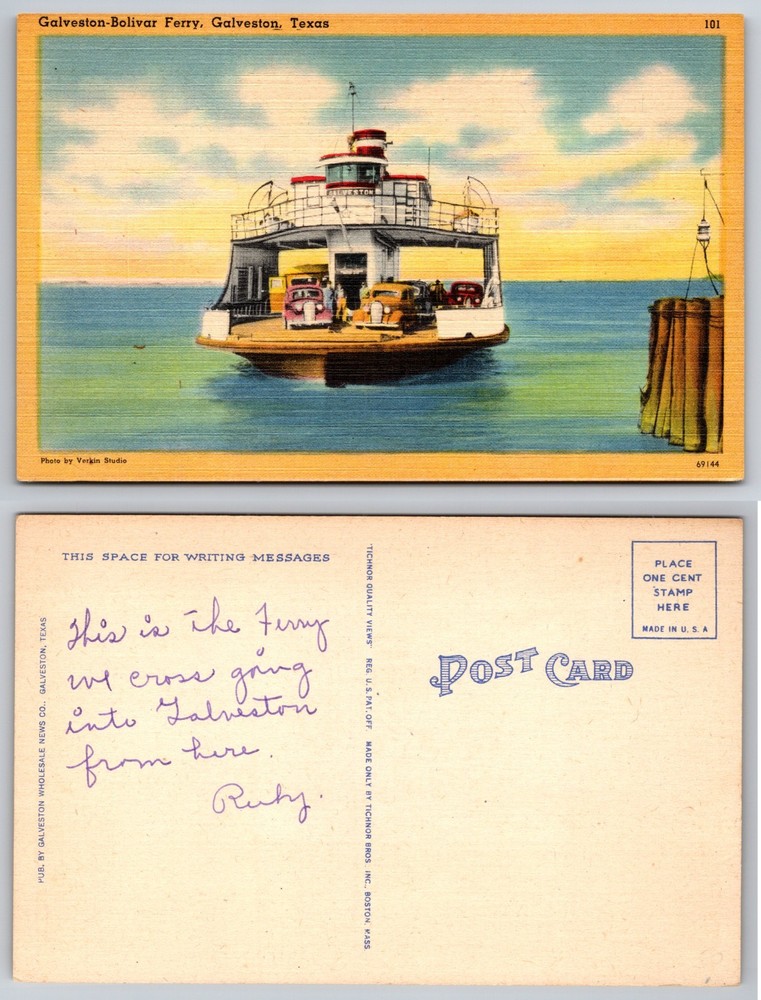 Galveston-Bolivar Ferry, Galveston, Texas
101
GALVESTON
Photo by Verkin Studio
69144
THIS SPACE FOR WRITING MESSAGES
This is the Ferry
we cross going
into Galveston
from here.
Ruby.
PUB. BY GALVESTON WHOLESALE NEWS CO., GALVESTON, TEXAS
"TICHNOR QUALITY VIEWS" REG. U. S. PAT. OFF. MADE ONLY BY TICHNOR BROS. INC., BOSTON, MASS.
POST CARD
PLACE
ONE CENT
STAMP
HERE
MADE IN U. S. A